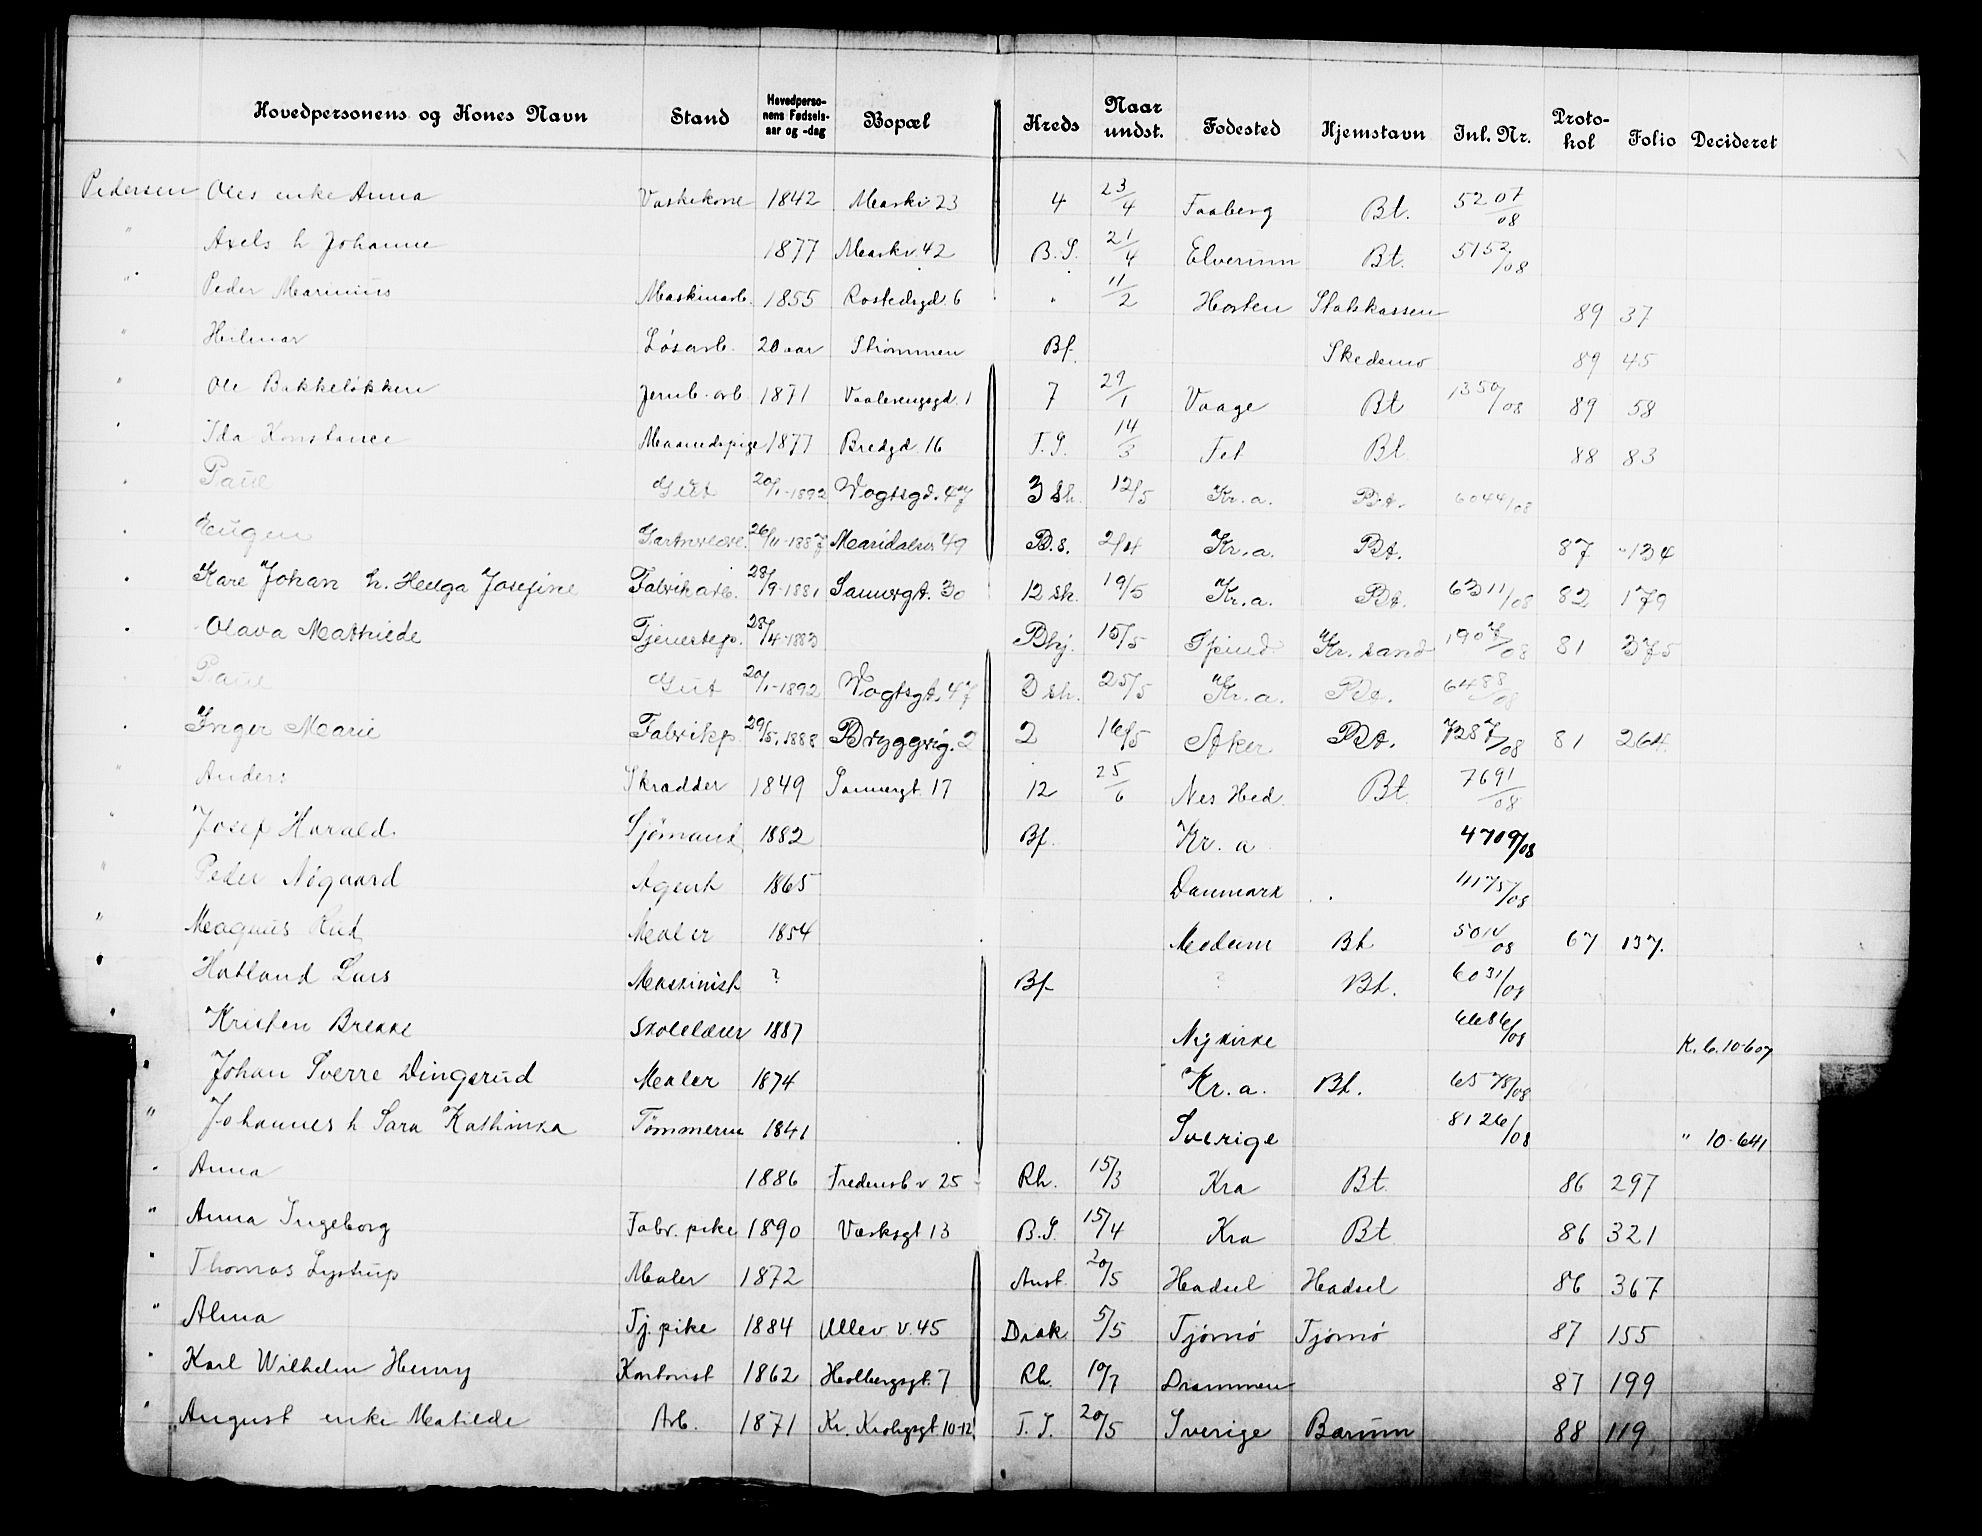 Hovedpersonens og Kones Navn Stand Hovedpersonens Fødselsaar og -dag Bopæl Kreds Naar undst. Fødested Hjemstavn Inl. Nr. Protokol Folio Decideret
Pedersen Oles enke Anna Vaskekone 1842 Markv 23 4 23/4 Faaberg Bt. 5207/08
" Axels h Johanne 1877 Markv. 42 B. S. 21/4 Elverum Bt. 5152/08
" Peder Marinius Maskinarb. 1855 Rostedsgd. 6 " 11/2 Horten Statskassen 89 37
" Hilmar Løsarb. 20 aar Strømmen Bf. Skedsmo 89 45
" Ole Bakkeløkken Jernb. arb 1871 Vaalerengsgd. 1 7 29/1 Vaage Bt 1350/08 89 58
" Ida Konstance Maanedspige 1877 Bredgd. 16 T. S. 14/3 Fet Bt. 88 83
" Paul Gut 20/1-1892 Vogtsgd. 47 3 sk. 12/5 Kr.a. Bt. 6044/08
" Eugen 26/11-1887 Maridalsv. 49 B.s. 2/4 Kr.a. Bt. 87 134
" Karl Johan h. Helga Josefine Fabrikarb. 28/9-1881 Sannergt. 30 12 sk. 19/5 Kr.a. Bt. 6311/08 82 179
" Olava Mathilde Tjenestep. 28/4-1883 Bhj. 15/5 Spind Kr.sand 1907/08 81 375
" Paul Gut 20/1-1892 Vogtsgt. 47 3 sk. 25/5 Kr.a. Bt. 6488/08
" Inger Marie Fabrikp. 29/5.1888 Bryggrig. 2 2 16/5 Aker Bt. 7287/08 81 264.
" Anders Skradder 1849 Sannergt. 17 12 25/6 Nes Hed. Bt. 7691/08
" Josef Harald. Sjømand 1882 Bf. Kr. a 4709/08
" Peder Nøgaard Agent 1865 Danmark 4175/08
" Magnus Rud Maler 1854 Modum Bt 5011/08 67 137.
" Hatland Lars Maskinist ? Bf ? Bt. 6031/08
" Kristen Brekke Skolelærer 1887 Nykirke 6686/08 K. 6. 10-607
" Johan Sverre Dingsrud Maler 1874 Kr. a. Bt. 6578/08
" Johannes h Sara Kathinka Tømmerm 1841 Sverige 8126/08 " 10-641
" Anna 1886 Fredensb v 25 Rh. 15/3 Kra Bt. 86 297
" Anna Ingeborg Fabr. pike 1890 Værksgt 13 B.S. 15/4 Kra Bt 86 321
" Thomas Lystrup Maler 1872 Anst. 20/5 Hadsel Hadsel 86 367
" Alma Tj. pike 1884 Ullev. v. 45 Diak 5/5 Tjømø Tjømø 87 155
" Karl Wilhelm Henry Kontorist 1862 Holbergsgt. 7 Rh. 10/7 Drammen 87 199
" August enke Matilde Arb. 1871 Kr. Krohgsgt 10-12. T. S. 20/5 Sverige Bærum 88 119